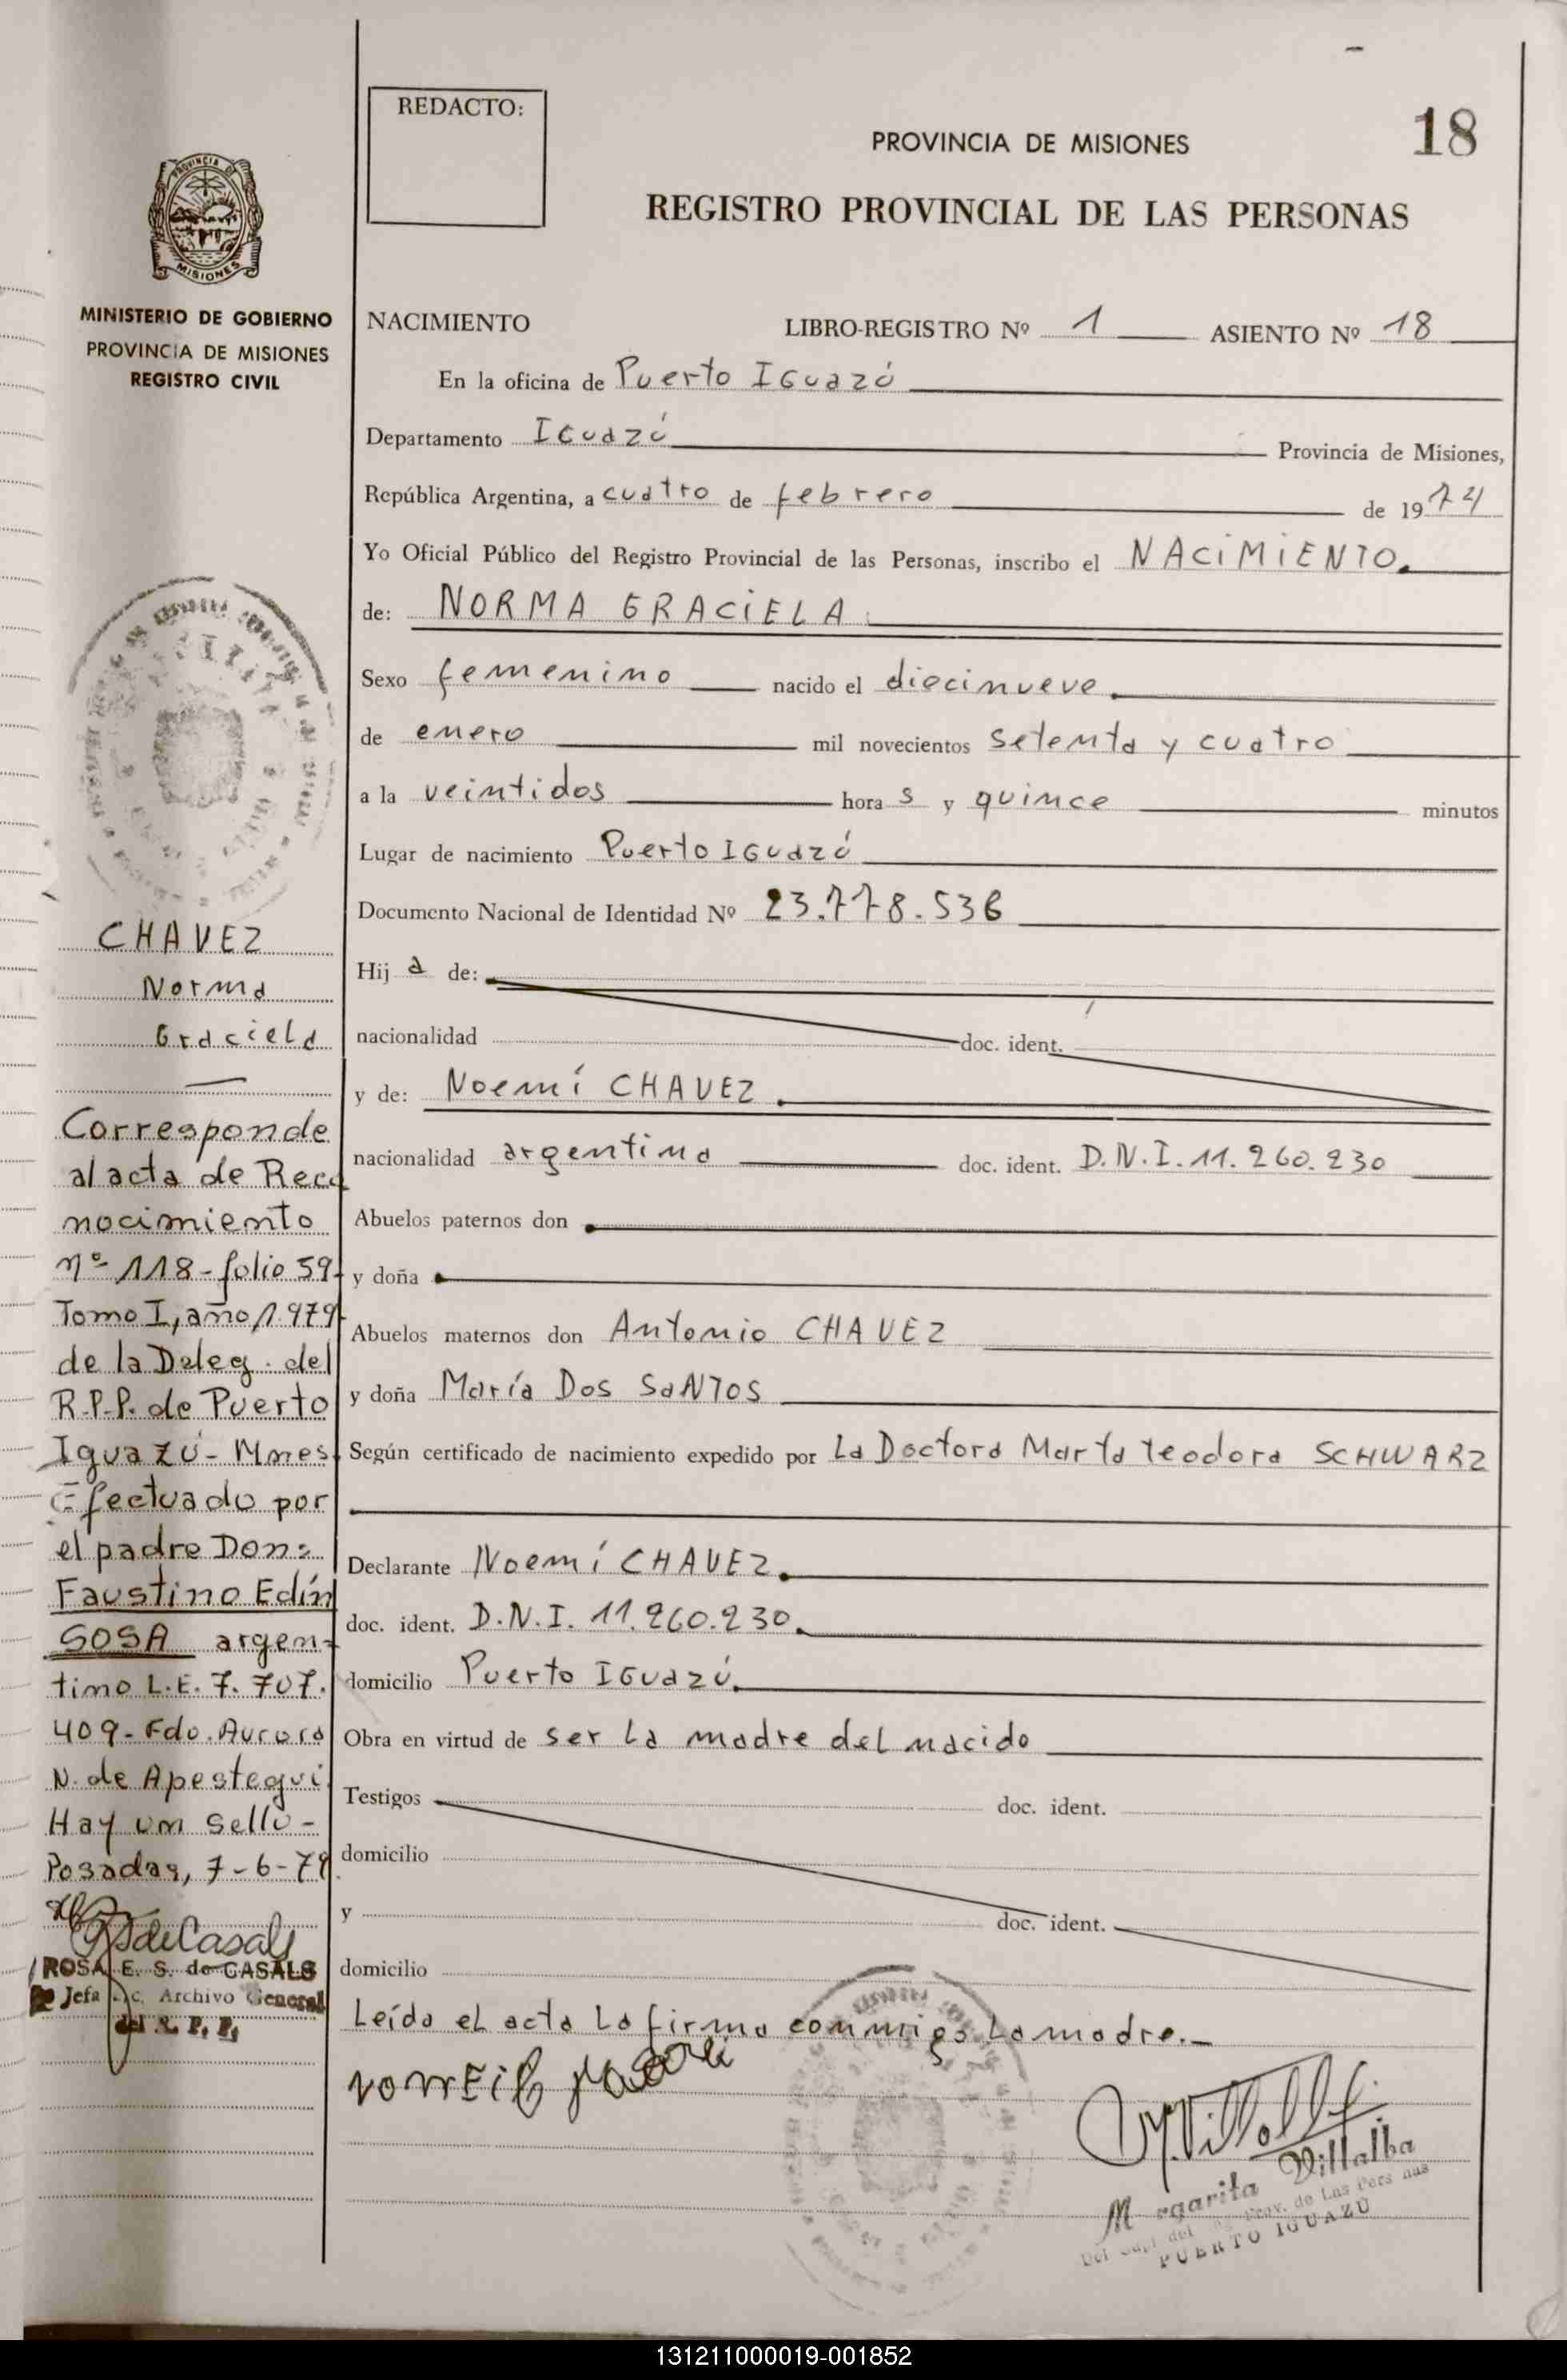 REDACTO:
18
PROVINCIA DE MISIONES
REGISTRO PROVINCIAL DE LAS PERSONAS
PROVINCIA DE
MISIONES
MINISTERIO DE GOBIERNO
PROVINCIA DE MISIONES
REGISTRO CIVIL
CHAVEZ
Norma
Graciela
Corresponde
al acta de Reco
nocimiento
nº 118-folio 59-
Tomo I, año 1.979
de la Deleg. del
R.P.P. de Puerto
Iguazú- Mnes.
Efectuado por
el padre Don:
Faustino Edín
SOSA argen-
tino L.E. 7.707.
409- Fdo. Aurora
N. de Apestegui
Hay un sello-
Posadas, 7-6-79.
ROSA E. S. de CASALS
Jefa Archivo General
del R. P. P.
NACIMIENTO LIBRO-REGISTRO Nº 1 ASIENTO Nº 18
En la oficina de Puerto IGuazú
Departamento IGuazú Provincia de Misiones,
República Argentina, a cuatro de febrero de 1974
Yo Oficial Público del Registro Provincial de las Personas, inscribo el NACIMIENTO.
de: NORMA GRACIELA
Sexo femenino nacido el diecinueve
de enero mil novecientos setenta y cuatro
a la veintidos hora s y quince minutos
Lugar de nacimiento Puerto IGuazú
Documento Nacional de Identidad Nº 23.778.536
Hij a de:
nacionalidad doc. ident.
y de: Noemí CHAVEZ
nacionalidad argentina doc. ident. D.N.I. 11.260.230
Abuelos paternos don
y doña
Abuelos maternos don Antonio CHAVEZ
y doña María Dos SANTOS
Según certificado de nacimiento expedido por La Doctora Marta teodora SCHWARZ
Declarante Noemí CHAVEZ
doc. ident. D.N.I. 11.260.230
domicilio Puerto IGuazú
Obra en virtud de ser La madre del nacido
Testigos doc. ident.
domicilio
y doc. ident.
domicilio
Leída el acta La firma conmigo La madre.-
Margarita Villalba
Prov. de Las Personas
PUERTO IGUAZU
131211000019-001852